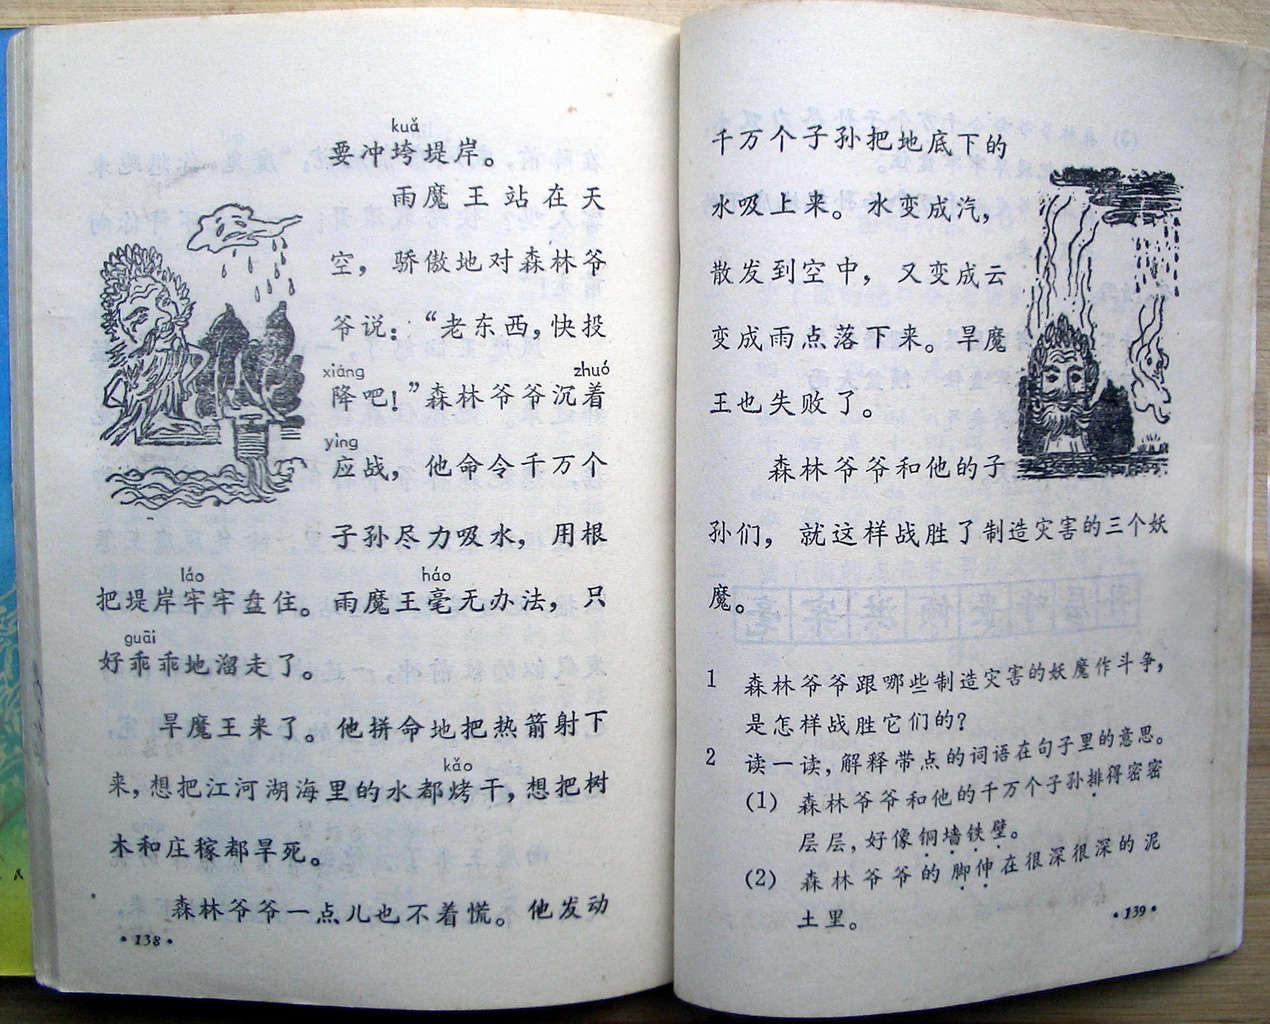 kuǎ
要冲垮堤岸。
雨魔王站在天
空，骄傲地对森林爷
爷说：“老东西，快投
xiáng zhuó
降吧！”森林爷爷沉着
yìng
应战，他命令千万个
子孙尽力吸水，用根
láo háo
把堤岸牢牢盘住。雨魔王毫无办法，只
guāi
好乖乖地溜走了。
旱魔王来了。他拼命地把热箭射下
kǎo
来，想把江河湖海里的水都烤干，想把树
木和庄稼都旱死。
森林爷爷一点儿也不着慌。他发动
·138·
千万个子孙把地底下的
水吸上来。水变成汽，
散发到空中，又变成云
变成雨点落下来。旱魔
王也失败了。
森林爷爷和他的子
孙们，就这样战胜了制造灾害的三个妖
魔。
1 森林爷爷跟哪些制造灾害的妖魔作斗争，
是怎样战胜它们的？
2 读一读，解释带点的词语在句子里的意思。
(1) 森林爷爷和他的千万个子孙排得密密
层层，好像铜墙铁壁。
(2) 森林爷爷的脚伸在很深很深的泥
土里。
·139·